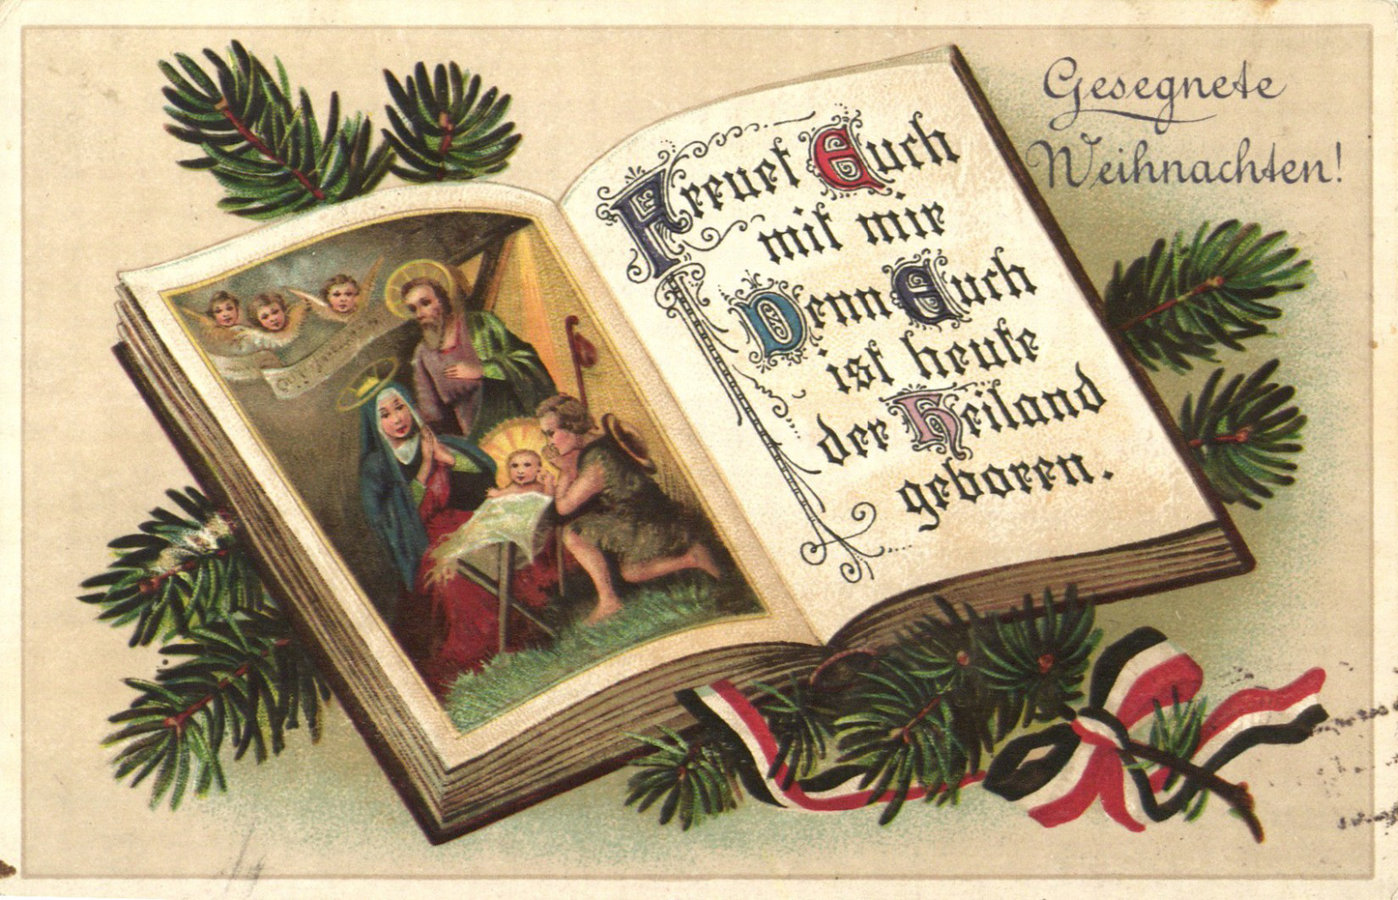 Gesegnete
Weihnachten!
Freuet Euch
mit mir
Denn Euch
ist heute
der Heiland
geboren.